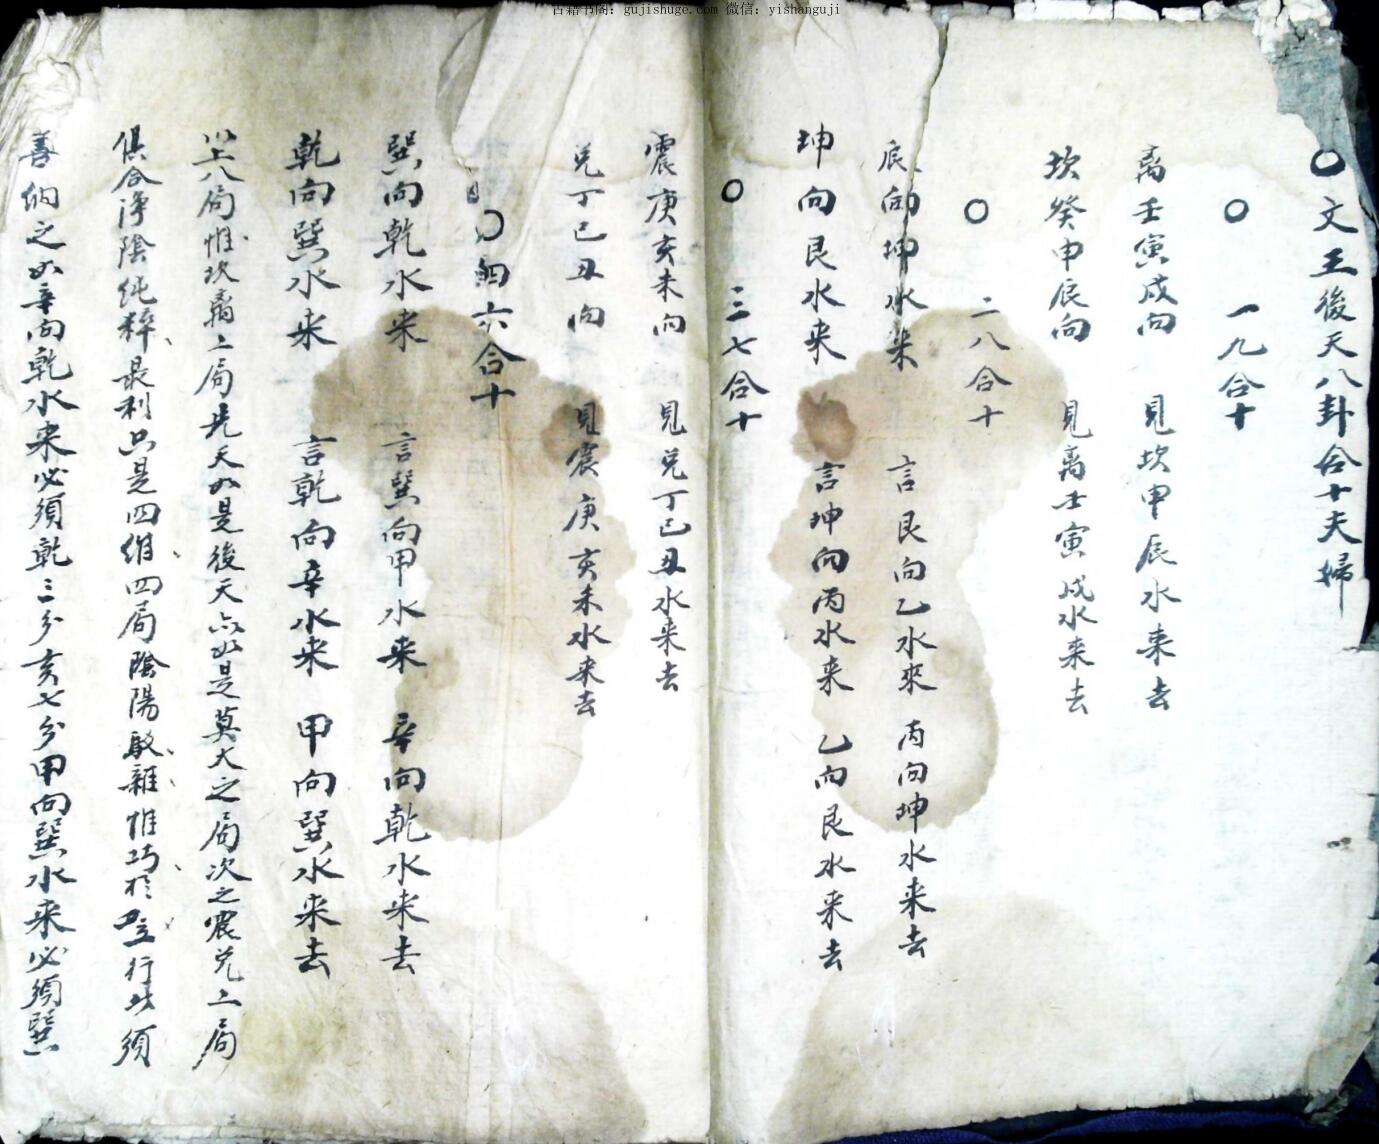 古籍书阁：gujishuge.com 微信：yishanguji
○文王後天八卦合十夫婦
○ 一九合十
离壬寅戌向 見坎申辰水来去
坎癸申辰向 見离壬寅戌水来去
○ 二八合十
向坤水来 言艮向乙水來 丙向坤水来去
坤向艮水来 言坤向丙水来 乙向艮水来去
○ 三七合十
震庚亥未向 見兑丁巳丑水来去
兑丁巳丑向 見震庚亥未水来去
○四六合十
巽向乾水来 言巽向甲水来 辛向乾水来去
乾向巽水来 言乾向辛水来 甲向巽水来去
以上八局惟坎离二局先天如是後天亦如是莫大之局次之震兑二局
俱合淨陰純粹最利只是四維四局陰陽駁雜惟巧於立行必須
善納之如辛向乾水来必須乾三分亥七分甲向巽水来必須巽